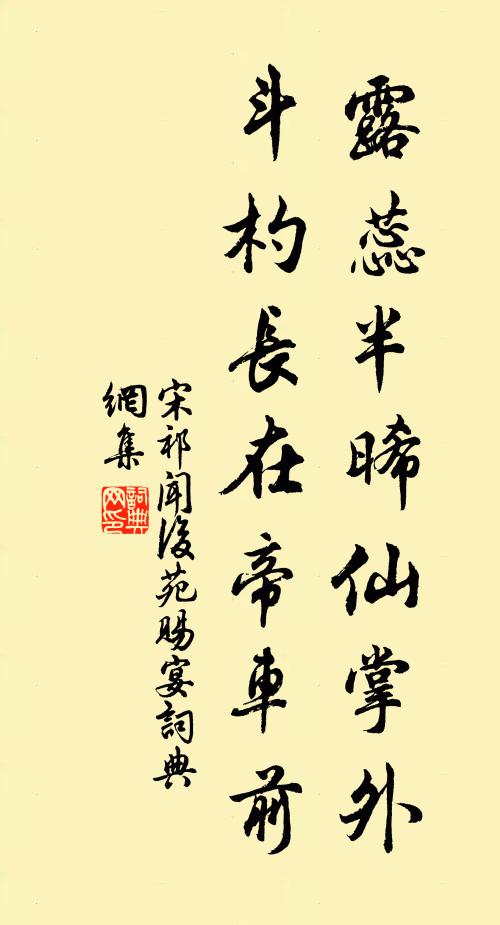 露蕊半晞仙掌外
斗杓長在帝車前
宋祁聞後苑賜宴詞典
網集
詞典網印